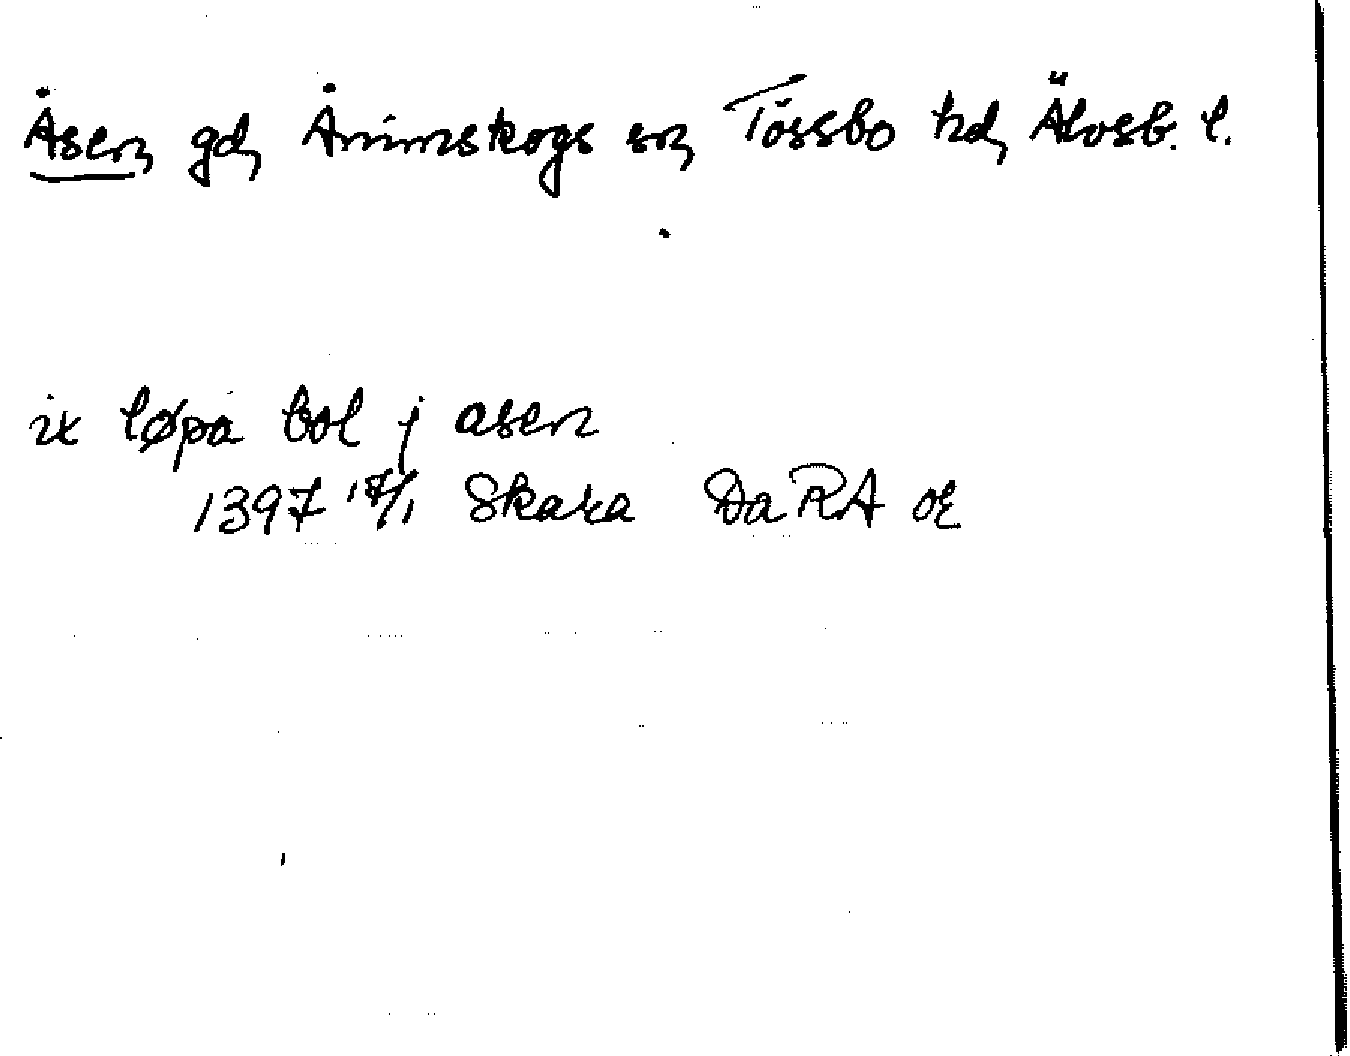 Åsen, gd, Ånimskogs sn, Tössbo hd, Älvsb. l.
ix løpa bol j asen
1397 17/1 Skara DaRA or